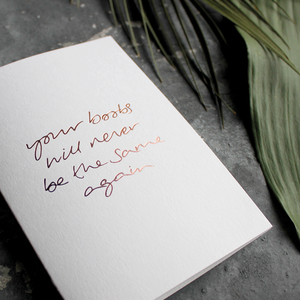 your boobs
will never
be the same
again